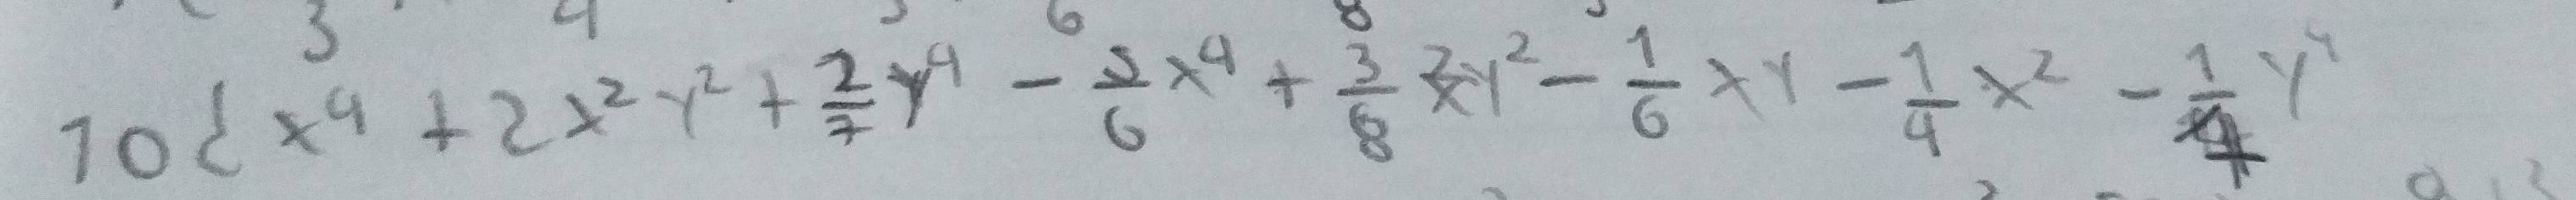 10{ x⁴ + 2x²y² + 2/7 y⁴ - 5/6 x⁴ + 3/8 xy² - 1/6 xy - 1/4 x² - 1/7 y⁴